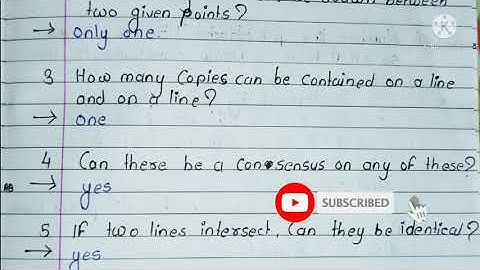 two given points?
→ only one.
3 How many Copies can be contained on a line
and on a line?
→ one
4 Can there be a consensus on any of these?
→ yes
SUBSCRIBED
5 If two lines intersect, Can they be identical?
→ yes